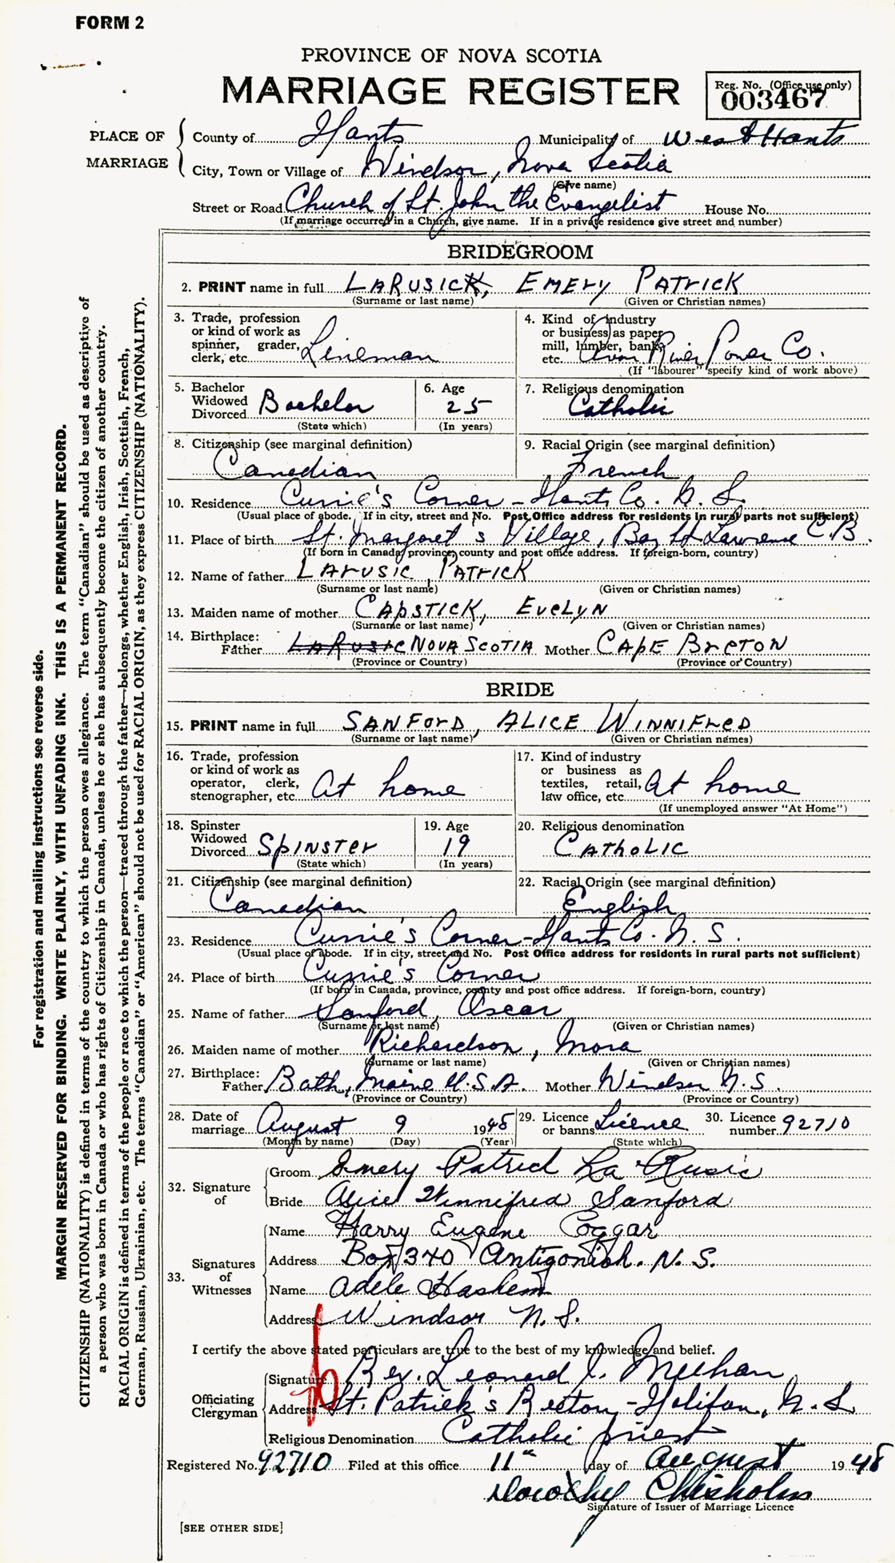 FORM 2
PROVINCE OF NOVA SCOTIA
MARRIAGE REGISTER
Reg. No. (Office use only)
003467
PLACE OF MARRIAGE
County of Hants Municipality of West Hants
City, Town or Village of Windsor, Nova Scotia
(Give name)
Street or Road Church of St. John the Evangelist House No.
(If marriage occurred in a Church, give name. If in a private residence give street and number)
BRIDEGROOM
2. PRINT name in full LARUSICK, EMERY PATRICK
(Surname or last name) (Given or Christian names)
3. Trade, profession or kind of work as spinner, grader, clerk, etc. Lineman
4. Kind of industry or business as paper mill, lumber, bank, etc. Avon River Power Co.
(If "labourer" specify kind of work above)
5. Bachelor Widowed Divorced Bachelor
(State which)
6. Age 25
(In years)
7. Religious denomination Catholic
8. Citizenship (see marginal definition) Canadian
9. Racial Origin (see marginal definition) French
10. Residence Currie's Corner - Hants Co. N.S.
(Usual place of abode. If in city, street and No. Post Office address for residents in rural parts not sufficient)
11. Place of birth St. Margaret's Village, Bay St Lawrence C.B.
(If born in Canada, province, county and post office address. If foreign-born, country)
12. Name of father LARUSIC, PATRICK
(Surname or last name) (Given or Christian names)
13. Maiden name of mother CAPSTICK, EVELYN
(Surname or last name) (Given or Christian names)
14. Birthplace: Father LARUSIC NOVA SCOTIA Mother CAPE BRETON
(Province or Country) (Province or Country)
BRIDE
15. PRINT name in full SANFORD, ALICE WINNIFRED
(Surname or last name) (Given or Christian names)
16. Trade, profession or kind of work as operator, clerk, stenographer, etc. At home
17. Kind of industry or business as textiles, retail, law office, etc. At home
(If unemployed answer "At Home")
18. Spinster Widowed Divorced SPINSTER
(State which)
19. Age 19
(In years)
20. Religious denomination CATHOLIC
21. Citizenship (see marginal definition) Canadian
22. Racial Origin (see marginal definition) English
23. Residence Currie's Corner - Hants Co. N.S.
(Usual place of abode. If in city, street and No. Post Office address for residents in rural parts not sufficient)
24. Place of birth Currie's Corner
(If born in Canada, province, county and post office address. If foreign-born, country)
25. Name of father Sanford, Oscar
(Surname or last name) (Given or Christian names)
26. Maiden name of mother Richardson, Mora
(Surname or last name) (Given or Christian names)
27. Birthplace: Father Bath, Maine U.S.A. Mother Windsor N.S.
(Province or Country) (Province or Country)
28. Date of marriage August 9 1948
(Month by name) (Day) (Year)
29. Licence or banns Licence
(State which)
30. Licence number 92710
32. Signature of
Groom Emery Patrick La Rusic
Bride Alice Winnifred Sanford
33. Signatures of Witnesses
Name Harry Eugene Coggar
Address Box 340 Antigonish. N.S.
Name Adele Hashem
Address Windsor N.S.
I certify the above stated particulars are true to the best of my knowledge and belief.
Officiating Clergyman
Signature Rev. Leonard J. Meehan
Address St. Patrick's Rectory - Halifax, N.S.
Religious Denomination Catholic priest
Registered No. 92710 Filed at this office 11th day of August 1948
Dorothy Chisholm
Signature of Issuer of Marriage Licence
[SEE OTHER SIDE]
For registration and mailing instructions see reverse side.
MARGIN RESERVED FOR BINDING. WRITE PLAINLY, WITH UNFADING INK. THIS IS A PERMANENT RECORD.
CITIZENSHIP (NATIONALITY) is defined in terms of the country to which the person owes allegiance. The term "Canadian" should be used as descriptive of
a person who was born in Canada or who has rights of Citizenship in Canada, unless he or she has subsequently become the citizen of another country.
RACIAL ORIGIN is defined in terms of the people or race to which the person—traced through the father—belongs, whether English, Irish, Scottish, French,
German, Russian, Ukrainian, etc. The terms "Canadian" or "American" should not be used for RACIAL ORIGIN, as they express CITIZENSHIP (NATIONALITY).